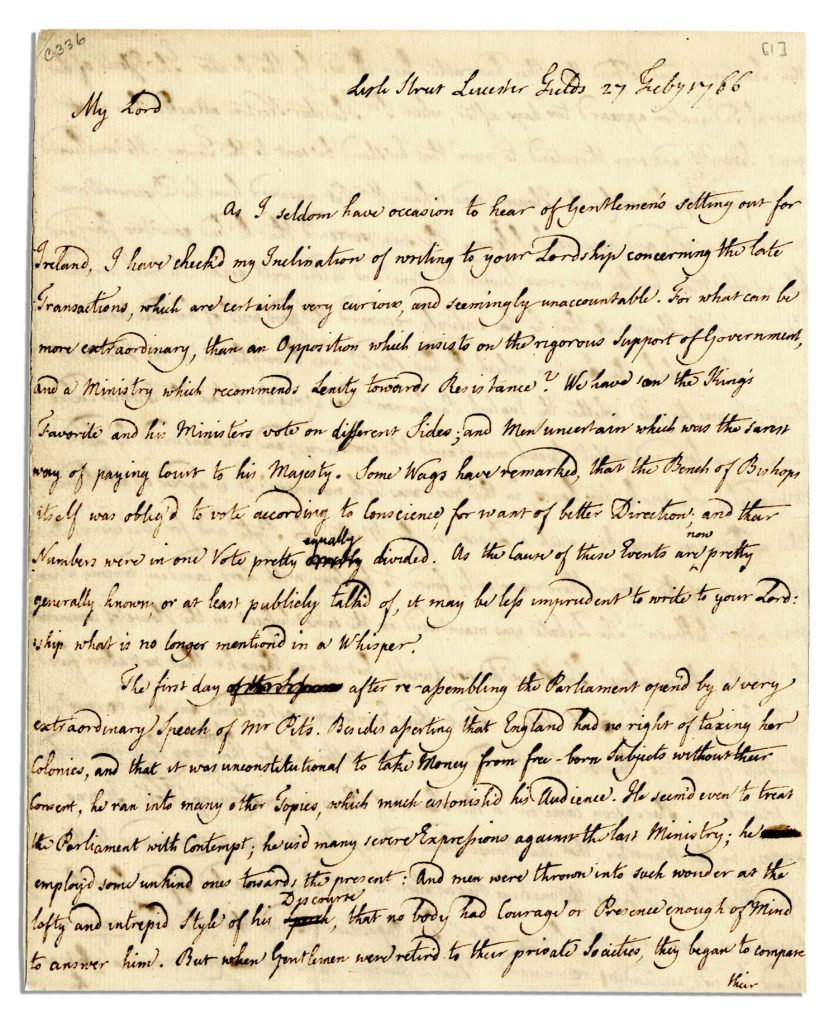 C336
[61]
Lisle Street Leicester Fields 27 Feby 1766
My Lord
As I seldom have occasion to hear of Gentlemen's setting out for
Ireland, I have check'd my Inclination of writing to your Lordship concerning the late
Transactions, which are certainly very curious, and seemingly unaccountable. For what can be
more extraordinary, than an Opposition which insists on the rigorous Support of Government,
and a Ministry which recommends Lenity towards Resistance? We have seen the King's
Favorite and his Ministers vote on different Sides; and Men uncertain which was the surest
way of paying Court to his Majesty. Some Wags have remarked, that the Bench of Bishops
itself was oblig'd to vote according to Conscience, for want of better Direction; and their
Numbers were in one Vote pretty equally divided. As the Cause of these Events are now pretty
generally known, or at least publicly talk'd of, it may be less imprudent to write to your Lord:
ship what is no longer mention'd in a Whisper.
The first day after re-assembling the Parliament open'd by a very
extraordinary Speech of Mr Pit's. Besides asserting that England had no right of taxing her
Colonies, and that it was unconstitutional to take Money from free-born Subjects without their
Consent, he ran into many other Topics, which much astonish'd his Audience. He seem'd even to treat
the Parliament with Contempt; he us'd many severe Expressions against the last Ministry; he
employ'd some unkind ones towards the present: And men were thrown into such wonder at the
lofty and intrepid Style of his Discourse, that no body had Courage or Presence enough of Mind
to answer him. But when Gentlemen were retir'd to their private Societies, they began to compare
their